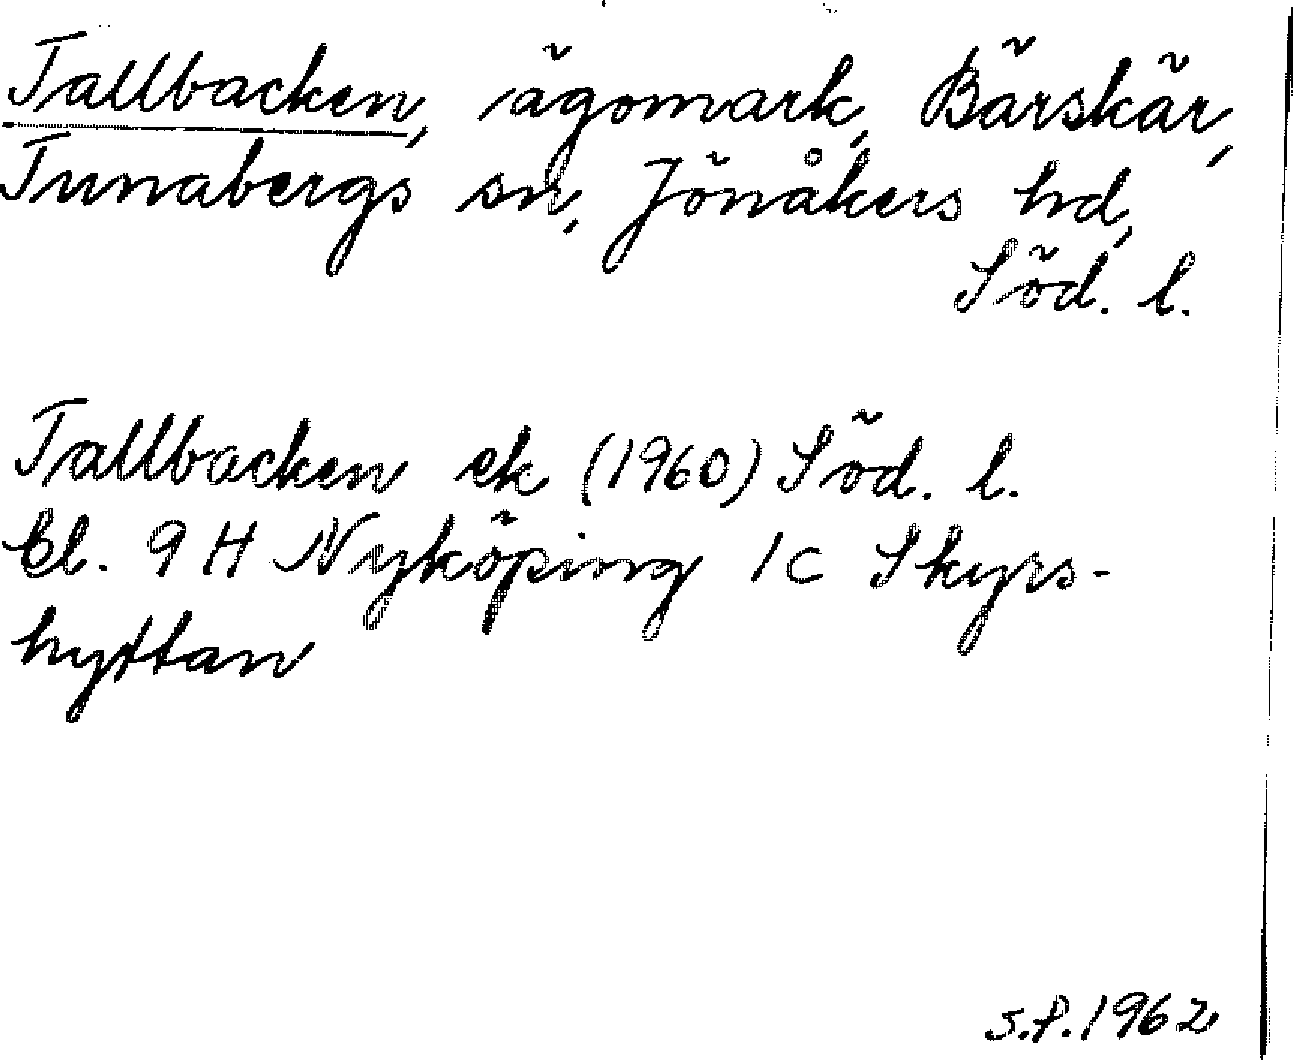 Tallbacken, ägomark, Bärskär,
Tunabergs sn, Jönåkers hd,
Söd. l.
Tallbacken ek (1960) Söd. l.
bl. 9 H Nyköping 1c Skyrs-
hyttan
S.P. 1962